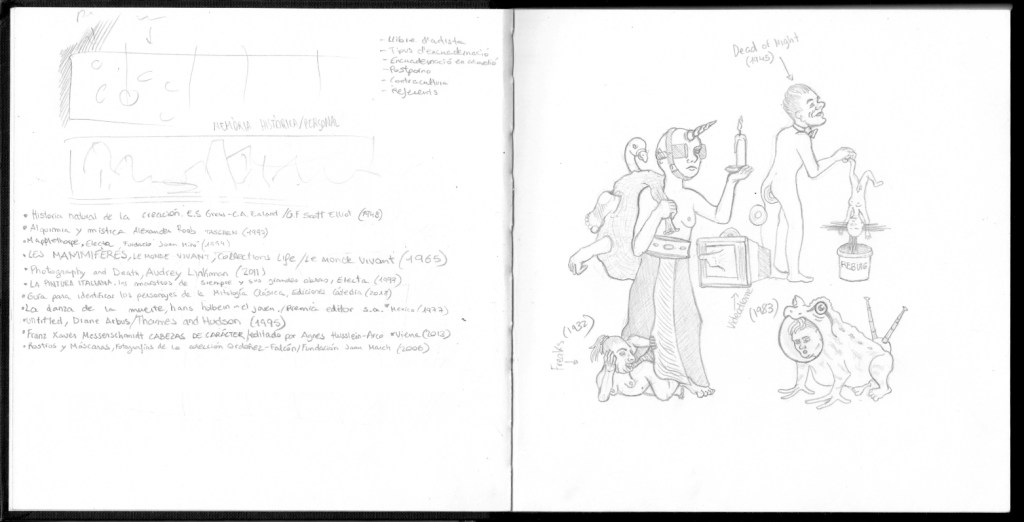 - Llibre d'artista
- Tipus d'encuadernació
- Encuadernació en
- Postporno
- Contracultura
- Referents
MEMÒRIA HISTÒRICA/PERSONAL
• Historia natural de la creación. E.S / G.F Scott Elliot (1948)
• Alquimia y mística Alexander Roob TASCHEN (1997)
• Mapplethorpe, Electa, Fundació Joan Miró
• LES MAMMIFÈRES, LE MONDE VIVANT, / COLLECTIONS LIFE / Le Monde Vivant (1965)
• Photography and Death, Audrey Linkman (2011)
• LA PINTURA ITALIANA, los maestros de siempre y sus grandes obras, Electa
• Guía para identificar los personajes de la Mitología Clásica, Ediciones Cátedra
• La danza de la muerte, hans holbein - el joven, / Premia editor s.a. • Mexico (1977)
• Untitled, Diane Arbus / Thames and Hudson (1995)
• Franz Xaver Messerschmidt CABEZAS DE CARÁCTER / editado por Agnes Husslein-Arco • Viena
• Rostros y Máscaras, Fotografías de la colección Ordóñez-Falcón / Fundación Juan March
Dead of Night
(1945)
REBUIG
Videodrome
(1983)
Freaks (1932)